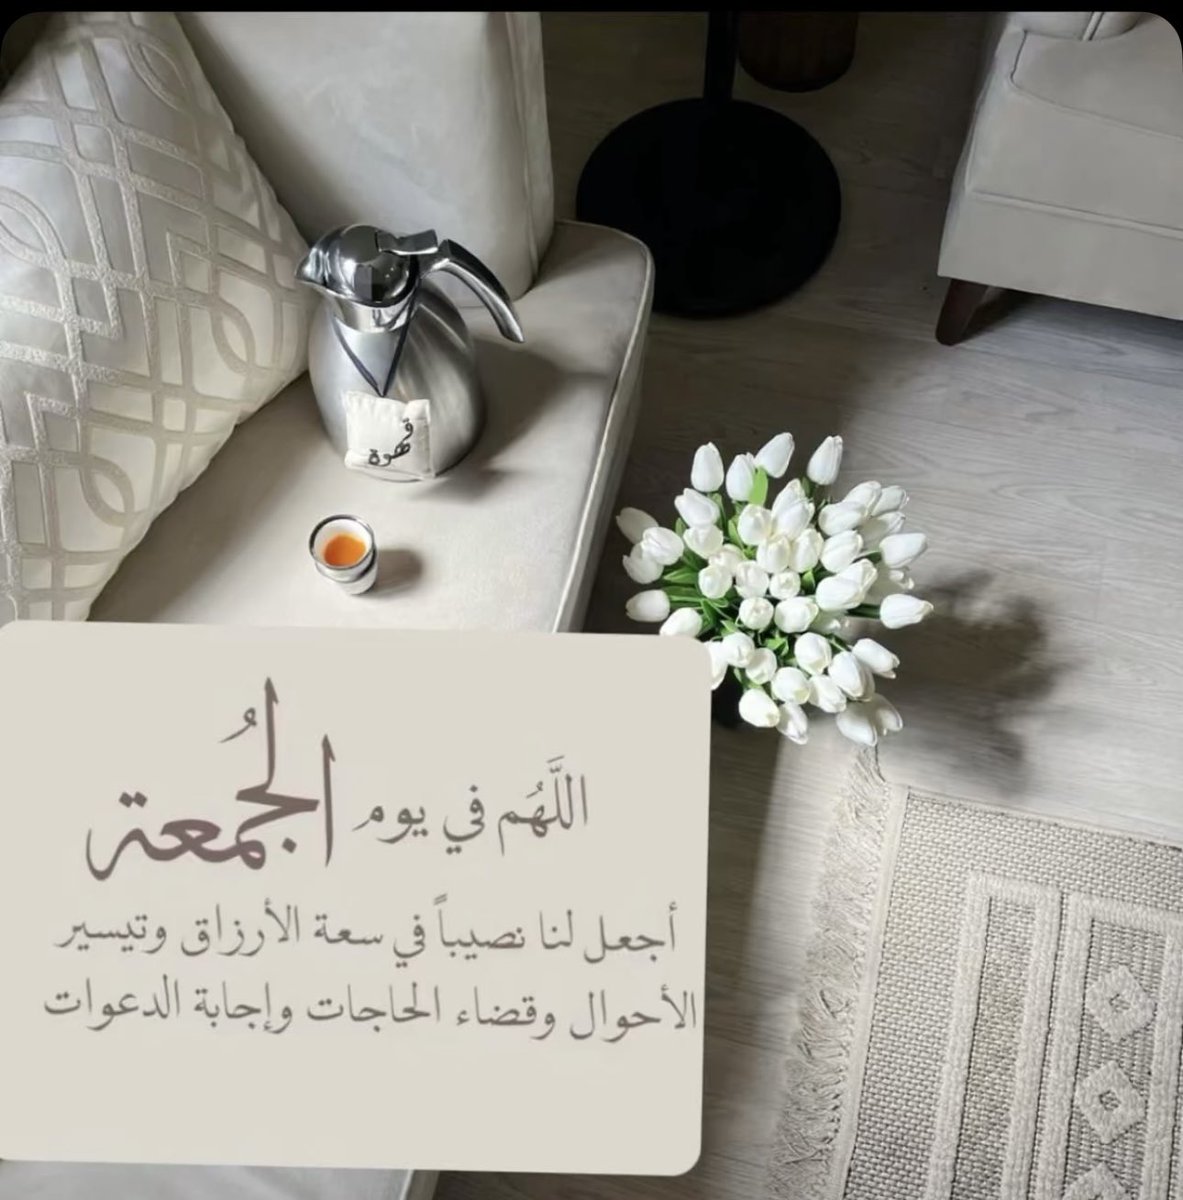 قهوة
اللَّهُم في يوم الجُمعة
أجعل لنا نصيباً في سعة الأرزاق وتيسير
الأحوال وقضاء الحاجات وإجابة الدعوات